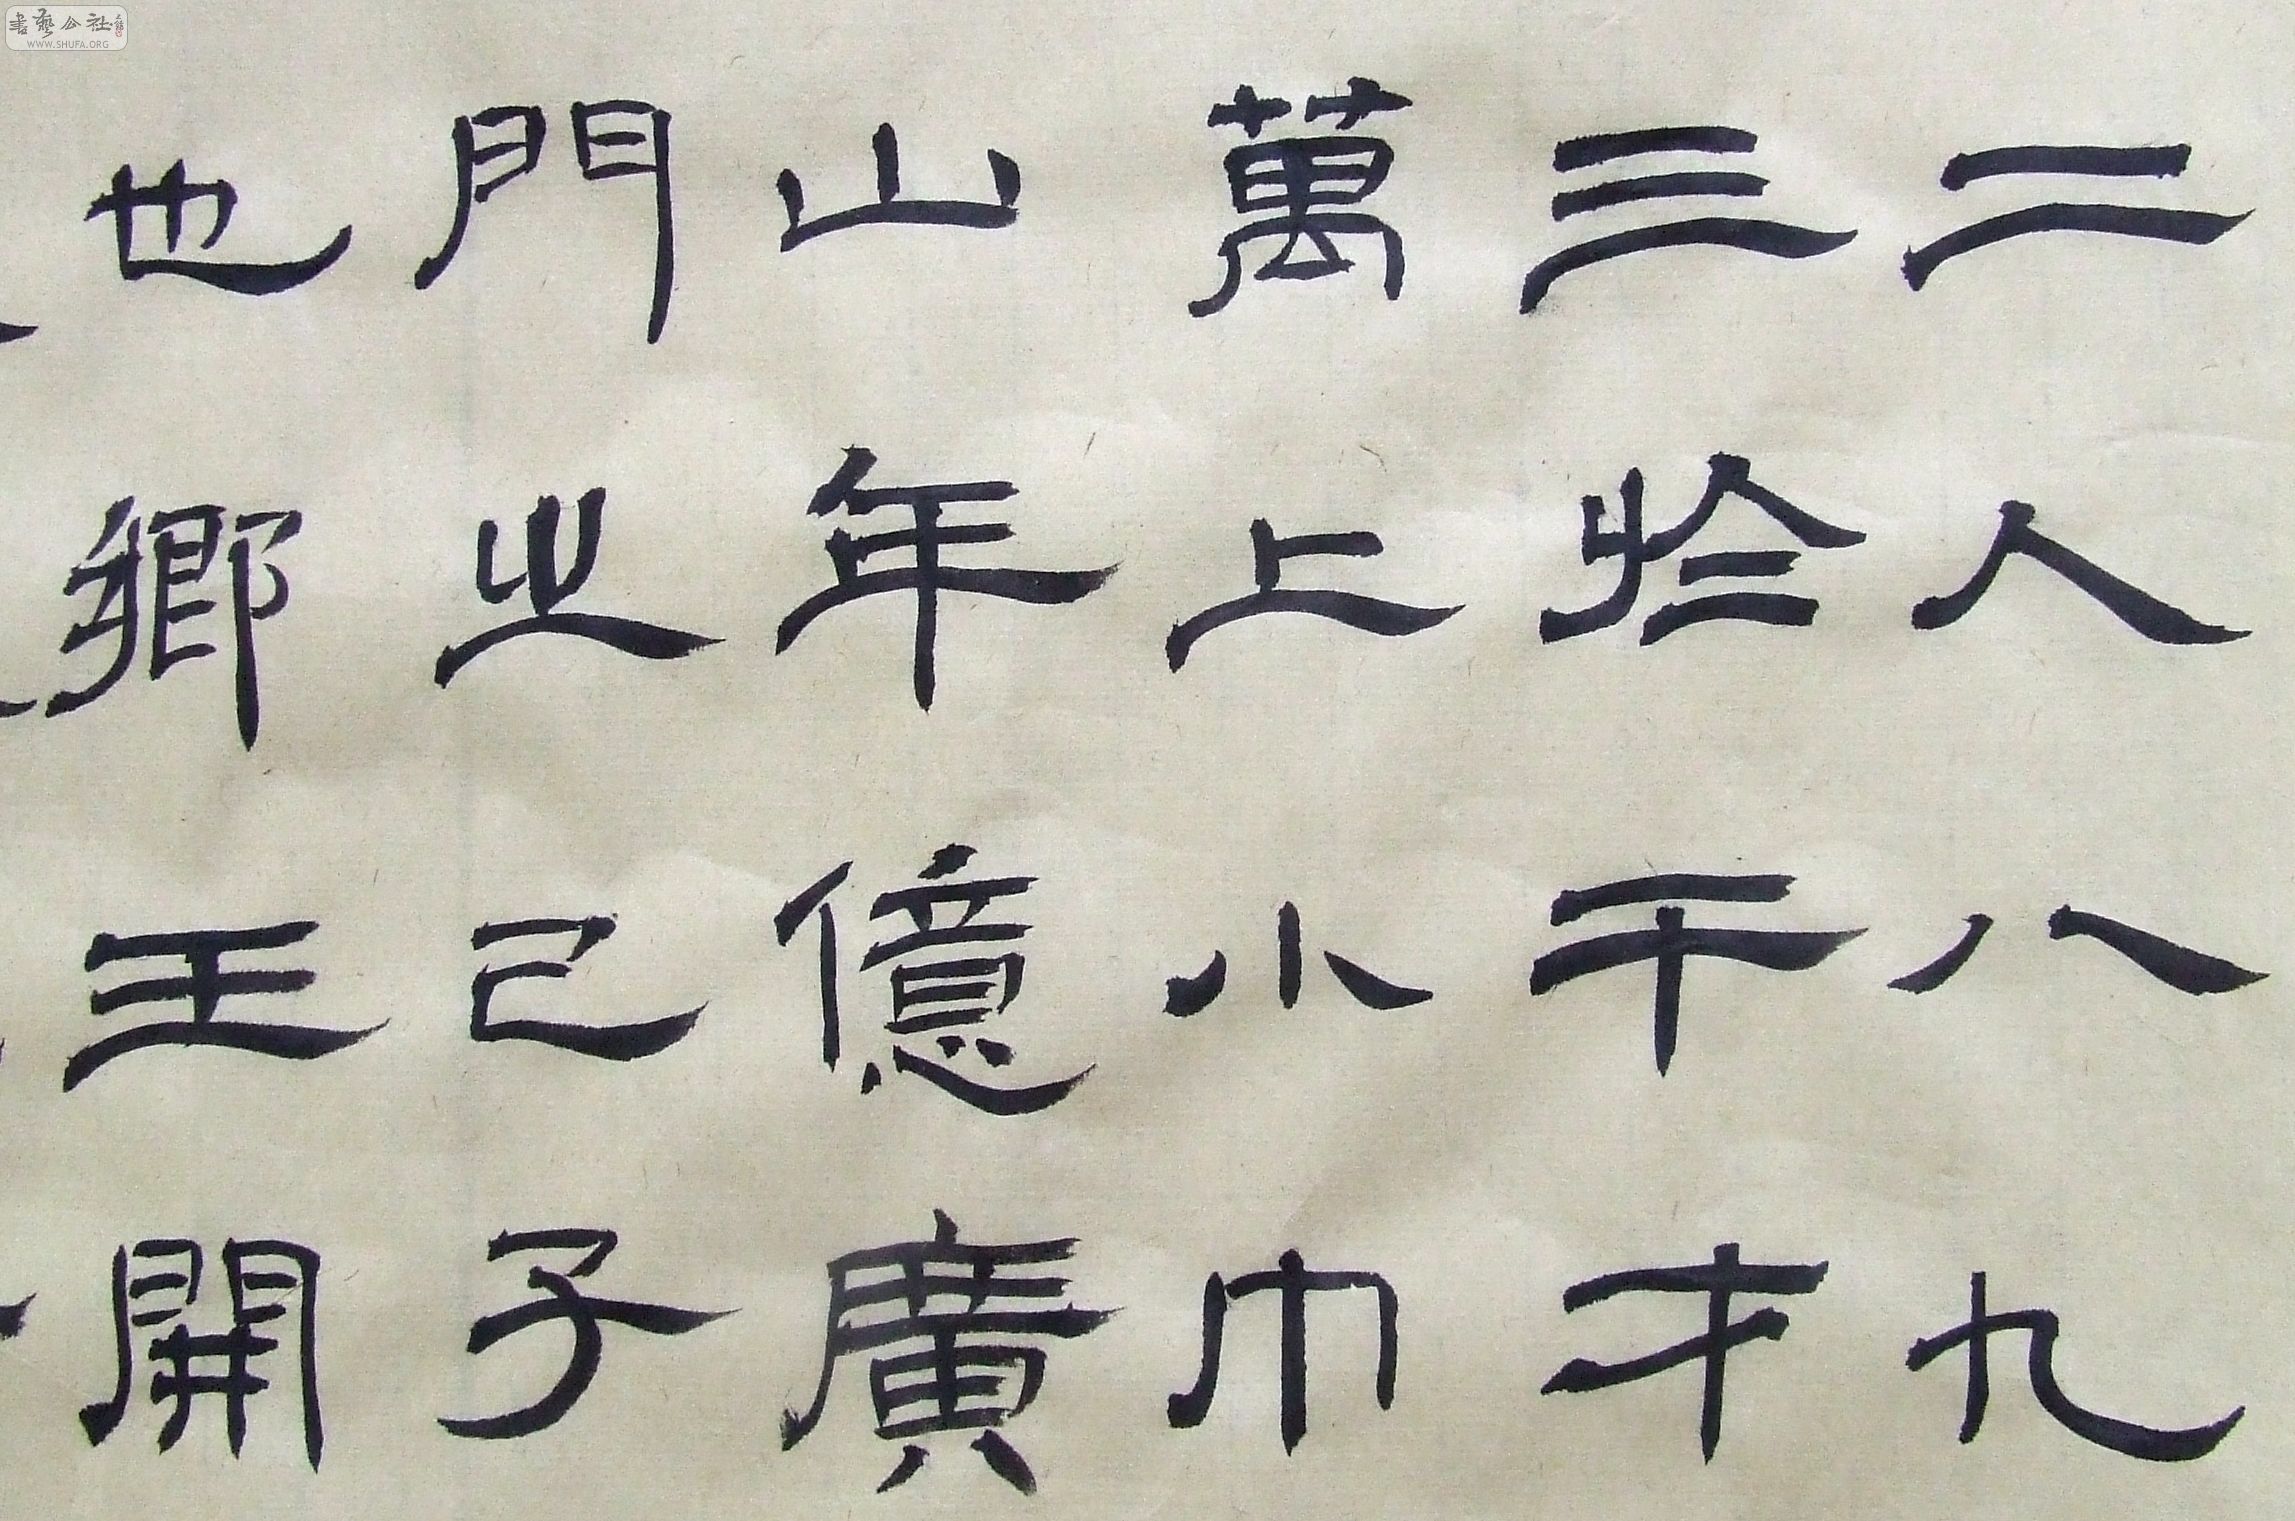 二人八九
三於干才
萬上小巾
山年億廣
門之己子
也鄉王開
書藝公社
WWW.SHUFA.ORG